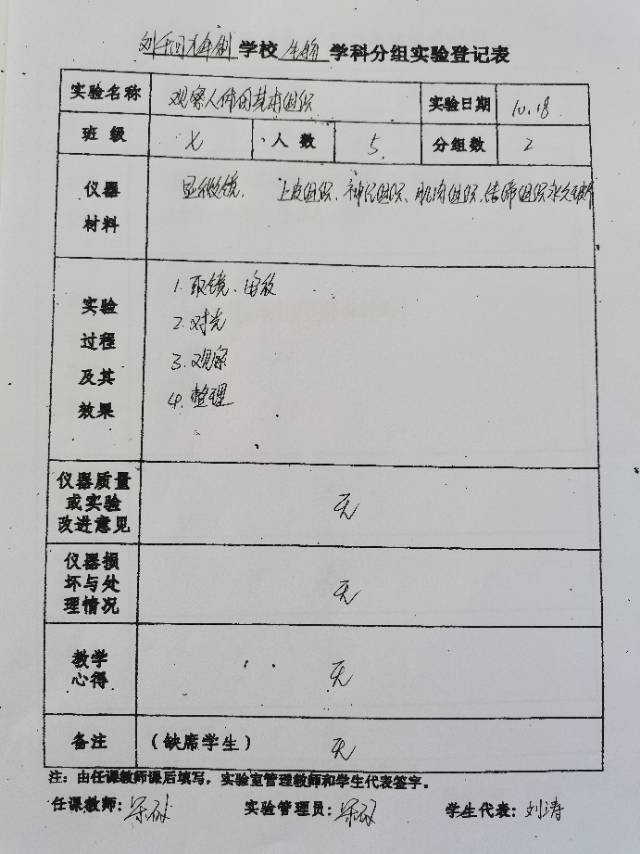 学校 生物 学科分组实验登记表
实验名称 观察人体的基本组织 实验日期 10.18
班级 人数 5 分组数 2
仪器材料 显微镜、上皮组织、神经组织、肌肉组织、结缔组织永久
实验过程及其效果
1. 取镜、安放
2. 对光
3. 观察
4. 整理
仪器质量或实验改进意见 无
仪器损坏与处理情况 无
教学心得 无
备注 (缺席学生) 无
注:由任课教师课后填写,实验室管理教师和学生代表签字。
任课教师: 实验管理员: 学生代表: 刘涛